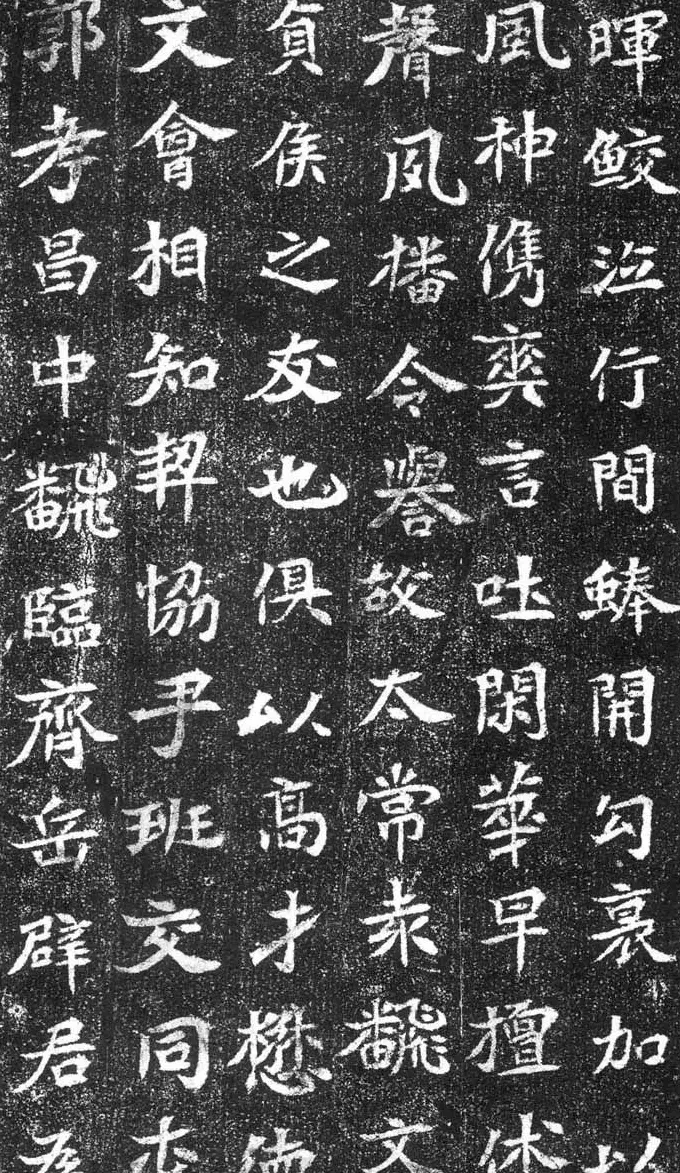 暉鮫泣行間開勾裏加以
風神儁爽言吐閑華早擅休
聲夙播令譽故太常袁飜文
貞侯之友也俱以高才懋德
文會相知契協尹班交同李
郭孝昌中飜臨齊岳辟君